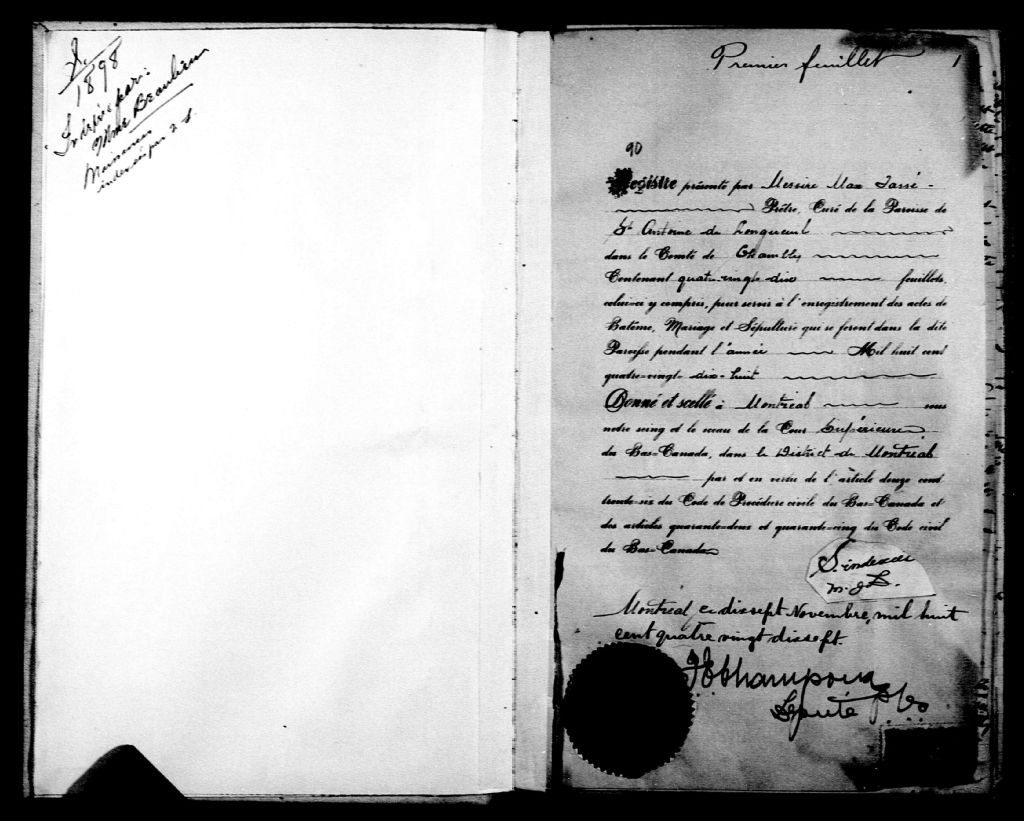 1898
Indexé par:
Mme Beaulieu
Naissances
indexées par
Premier feuillet 1
90
Registre présenté par Messire Max Tassé
Prêtre, Curé de la Paroisse de
St Antoine de Longueuil
dans le Comté de Chambly
Contenant quatre-vingt-dix feuillets,
celui-ci y compris, pour servir à l'enregistrement des actes de
Batême, Mariage et Sépulture qui se feront dans la dite
Paroisse pendant l'année Mil huit cent
quatre-vingt-dix-huit
Donné et scellé à Montréal sous
notre seing et le sceau de la Cour Supérieure
du Bas-Canada, dans le District de Montréal
par et en vertu de l'article douze cent
trente-six du Code de Procédure civile du Bas-Canada et
des articles quarante-deux et quarante-cinq du Code civil
du Bas-Canada
S. indexées
Montréal ce dixsept Novembre, mil huit
cent quatre vingt dixsept.
Député